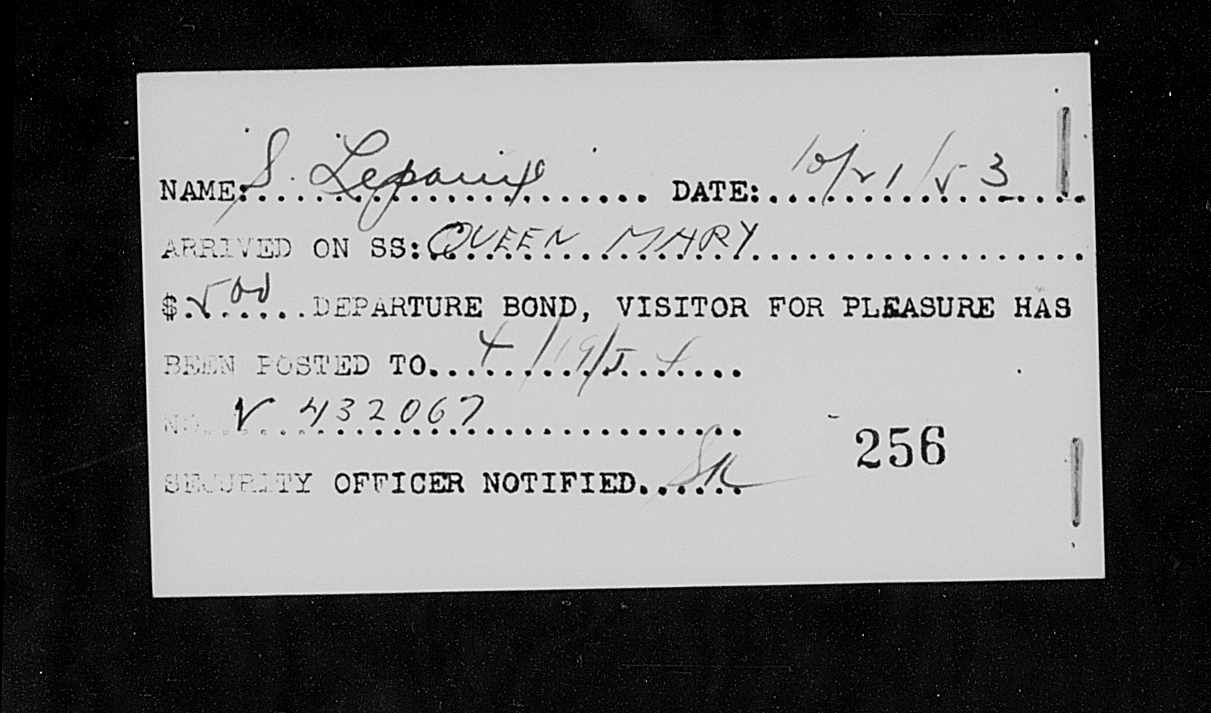 NAME: S. Lepouix DATE: 10/21/53
ARRIVED ON SS: QUEEN MARY
$ 500 DEPARTURE BOND, VISITOR FOR PLEASURE HAS
BEEN POSTED TO 4/19/54
NO. V 432067
256
SECURITY OFFICER NOTIFIED SR